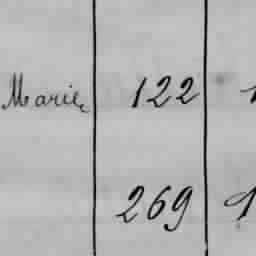 Marie 122
269